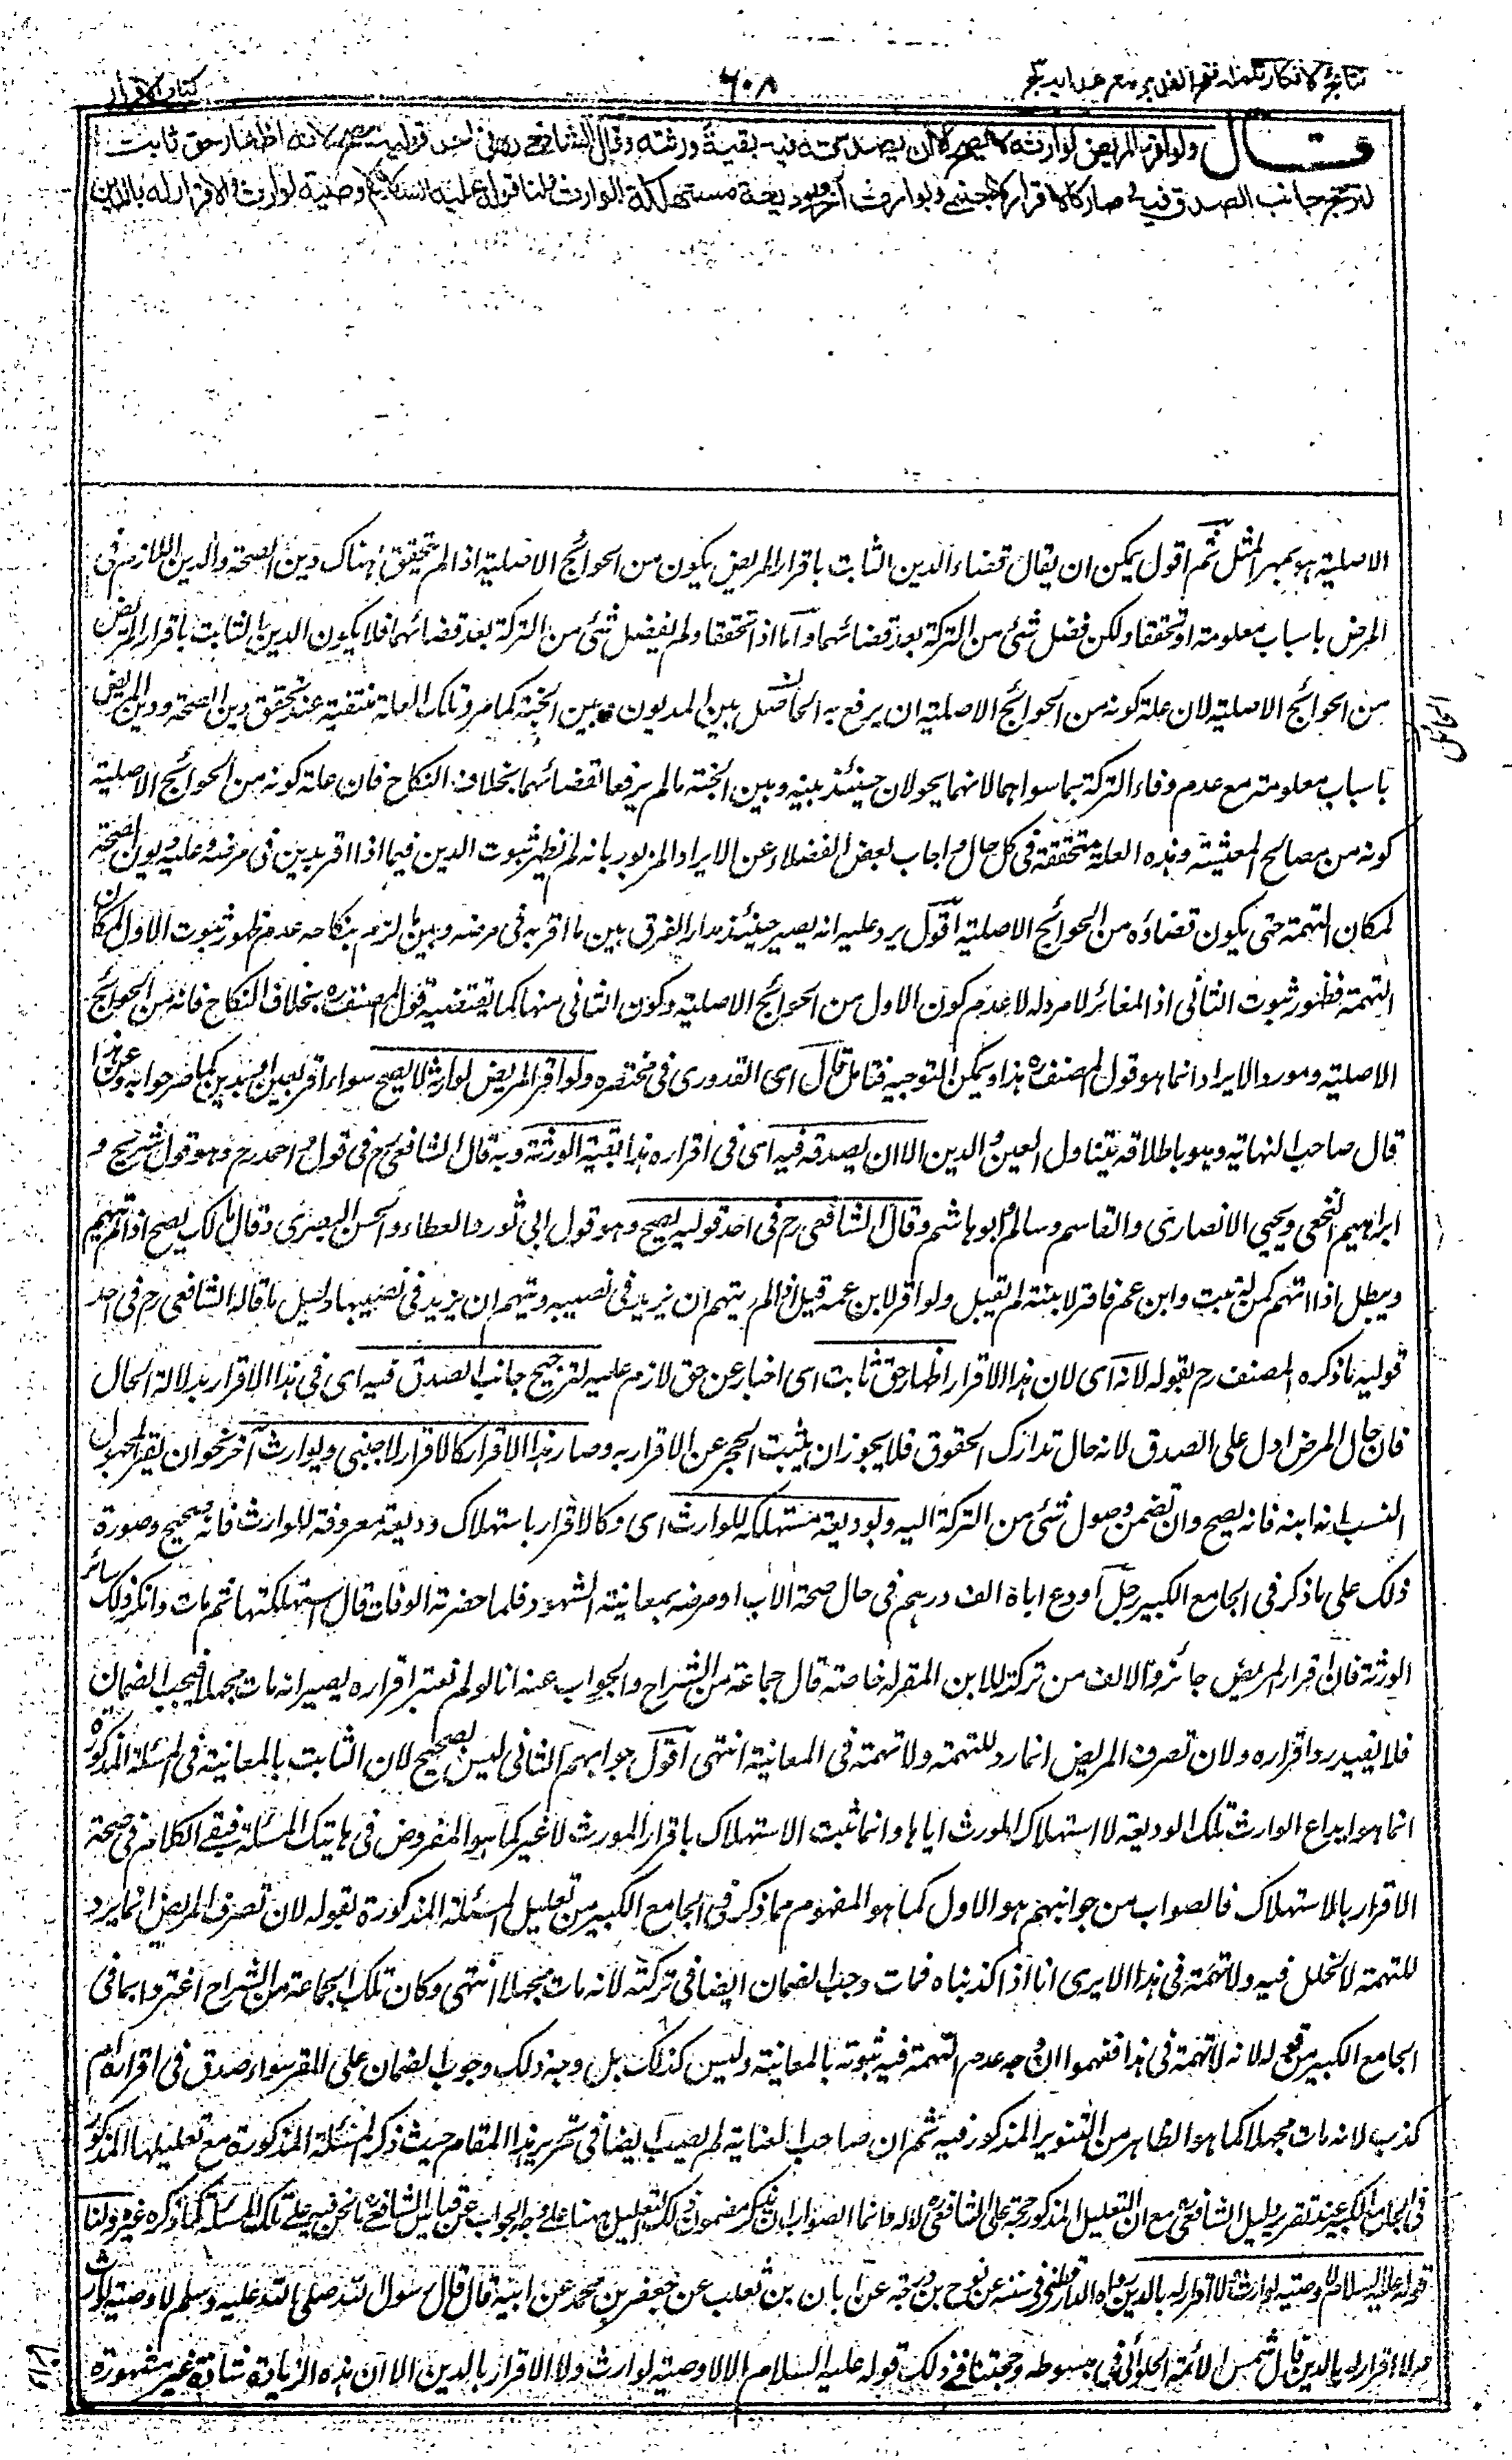 نتائج الافكار تكملة فتح القدير مع هدايه ج
٦٠٨
كتاب الاقرار
قال ولو اقر المريض لوارثه لا يصح الا ان يصدقه فيه بقية ورثته وقال الشافعي رح في احد قوليه يصح لانه اظهار حق ثابت
لترجح جانب الصدق فيه وصار كالاقرار لاجنبي وبوارث آخر وبوديعة مستهلكة للوارث ولنا قوله عليه السلام لا وصية لوارث ولا اقرار له بالدين
الاصلية هو بمهر المثل ثم اقول يمكن ان يقال قضاء الدين الثابت باقرار المريض يكون من الحوائج الاصلية اذا لم يتحقق هناك دين الصحة والدين اللازم في
المرض باسباب معلومة او تحققا ولكن فضل شئ من التركة بعد قضائهما واما اذا تحققا ولم يفضل شئ من التركة بعد قضائهما فلا يكون الدين الثابت باقرار المريض
من الحوائج الاصلية لان علة كونه من الحوائج الاصلية ان يرفع به الحائل بين المديون وبين الجنة كما مر وتلك العلة منتفية عند تحقق دين الصحة ودين المريض
باسباب معلومة مع عدم وفاء التركة بما سواهما لانهما يحولان حينئذ بينه وبين الجنة ما لم يرفعا بقضائهما بخلاف النكاح فان علة كونه من الحوائج الاصلية
كونه من مصالح المعيشة وهذه العلة متحققة في كل حال واجاب بعض الفضلاء عن الايراد المزبور بانه لم يظهر ثبوت الدين فيما اذا اقر بدين في مرضه وعليه ديون الصحة
لمكان التهمة حتى يكون قضاؤه من الحوائج الاصلية اقول يرد عليه انه يصير حينئذ مدار الفرق بين ما اقر به في مرضه وبين ما لزمه بنكاحه عدم ظهور ثبوت الاول لمكان
التهمة فظهور ثبوت الثاني اذ المغائر لا مرد له لا عدم كون الاول من الحوائج الاصلية وكون الثاني منها كما يقتضيه قول المصنف ره بخلاف النكاح فانه من الحوائج
الاصلية ومورد الايراد انما هو قول المصنف ره هذا ويمكن التوجيه فتامل قال اى القدورى في مختصره ولو اقر المريض لوارثه لا يصح سواء اقر بعين او بدين كما صرحوا به وعن هذا
قال صاحب النهاية وهو باطلاقه يتناول العين والدين الا ان يصدقه فيه اى في اقراره هذا بقية الورثة وبه قال الشافعي رح في قول واحمد رح وهو قول شريح و
ابراهيم النخعي ويحيى الانصارى والقاسم وسالم وابو هاشم وقال الشافعي رح في احد قوليه يصح وهو قول ابي ثور وعطاء والحسن البصرى وقال مالك يصح اذا لم يتهم
ويبطل اذا اتهم كمن له بنت وابن عم فاقر لابنته لم تقبل ولو اقر لابن عمه قبل اذ لم يتهم ان يزيد في نصيبه ويتهم ان يزيد في نصيبها دليل ما قاله الشافعي رح في احد
قوليه ما ذكره المصنف رح بقوله لانه اى لان هذا الاقرار اظهار حق ثابت اى اخبار عن حق لازم عليه لترجيح جانب الصدق فيه اى في هذا الاقرار بدلالة الحال
فان حال المرض ادل على الصدق لانه حال تدارك الحقوق فلا يجوز ان يثبت الحجر عن الاقرار به وصار هذا الاقرار كالاقرار لاجنبي وبوارث آخر نحو ان يقر لمجهول
النسب انه ابنه فانه يصح وان تضمن وصول شئ من التركة اليه وبوديعة مستهلكة للوارث اى وكالاقرار باستهلاك وديعة معروفة للوارث فانه صحيح وصورة
ذلك على ما ذكر في الجامع الكبير رجل اودع اباه الف درهم في حال صحة الاب او مرضه بمعاينة الشهود فلما حضرته الوفات قال استهلكتها ثم مات وانكر ذلك سائر
الورثة فان اقرار المريض جائز والالف من تركته للابن المقر له خاصة قال جماعة من الشراح والجواب عنه انا لو لم نعتبر اقراره يصير انه مات مجهلا فيجب الضمان
فلا يفيد رد اقراره ولان تصرف المريض انما رد للتهمة ولا تهمة في المعاينة انتهى اقول جوابهم الثاني ليس بصحيح لان الثابت بالمعاينة في المسئلة المذكورة
انما هو ايداع الوارث تلك الوديعة لا استهلاك المورث اياها وانما ثبت الاستهلاك باقرار المورث لا غير كما هو المفروض في هاتيك المسئلة فبقي الكلام في صحة
الاقرار بالاستهلاك فالصواب من جوابيهم هو الاول كما هو المفهوم مما ذكر في الجامع الكبير من تعليل المسئلة المذكورة بقوله لان تصرف المريض انما يرد
للتهمة لا لخلل فيه ولا تهمة في هذا الا يرى انا اذا كذبناه فمات وجب الضمان ايضا في تركته لانه مات مجهلا انتهى وكان تلك الجماعة من الشراح اغتروا بما في
الجامع الكبير من قوله لانه لا تهمة في هذا ففهموا ان وجه عدم التهمة فيه ثبوته بالمعاينة وليس كذلك بل وجه ذلك وجوب الضمان على المقر سواء صدق في اقراره ام
كذب لانه مات مجهلا كما هو الظاهر من التنوير المذكور فيه ثم ان صاحب العناية لم يصب ايضا في تحرير هذا المقام حيث ذكر المسئلة المذكورة مع تعليلها المذكور
في الجامع الكبير عند تقرير دليل الشافعي مع ان التعليل المذكور حجة على الشافعي لا له وانما الصواب ان يذكر مضمون ذلك التعليل ههنا على وجه الجواب عن قياس الشافعي ما نحن فيه على تلك المسئلة كما ذكره غيره ولنا
قوله عليه السلام لا وصية لوارث ولا اقرار له بالدين رواه الدارقطني في سننه عن نوح بن دراج عن ابان بن تغلب عن جعفر بن محمد عن ابيه قال قال رسول الله صلى الله عليه وسلم لا وصية لوارث
ولا اقرار له بالدين قال شمس الائمة الحلوائي في مبسوطه وحجتنا في ذلك قوله عليه السلام الا لا وصية لوارث ولا الاقرار بالدين الا ان هذه الزيادة شاذة غير مشهورة